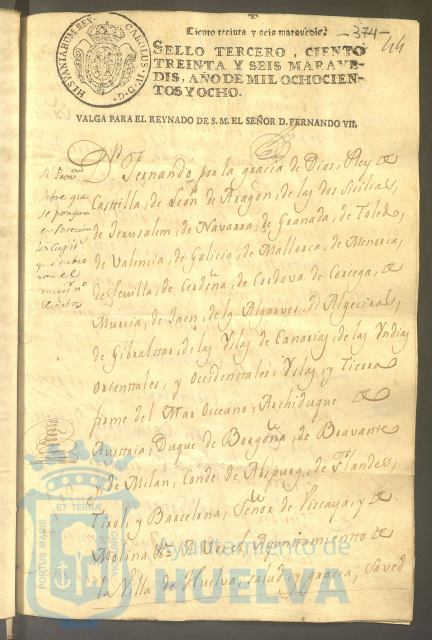 Ciento treinta y seis maravedis.
-374-
44
HISPANIARUM REX
CAROLUS IV D. G.
SELLO TERCERO, CIENTO
TREINTA Y SEIS MARAVE-
DIS, AÑO DE MIL OCHOCIEN-
TOS Y OCHO.
VALGA PARA EL REYNADO DE S. M. EL SEÑOR D. FERNANDO VII.
sobre que
se pongan
en Posecion
Dn. Fernando por la gracia de Dios, Rey de
Castilla, de Leon, de Aragon, de las dos Sicilias,
de Jerusalem, de Navarra, de Granada, de Toledo,
de Valencia, de Galicia, de Mallorca, de Menorca,
de Sevilla, de Cerdeña, de Cordova, de Corcega, de
Murcia, de Jaen, de los Algarves, de Algeciras,
de Gibraltar, de las Yslas de Canarias, de las Yndias
orientales, y Occidentales, Yslas, y Tierra
firme del Mar Oceano, Archiduque de
Austria, Duque de Borgoña, de Bravante
y de Milan, Conde de Abspurg, de Flandes,
Tirol, y Barcelona, Señor de Viscaya, y de
Molina &a. A Vos el Ayuntamiento de
la Villa de Huelva, salud y gracia, saved
PORTUS MARIS ET TERRAE CUSTODIA
Ayuntamiento de
HUELVA